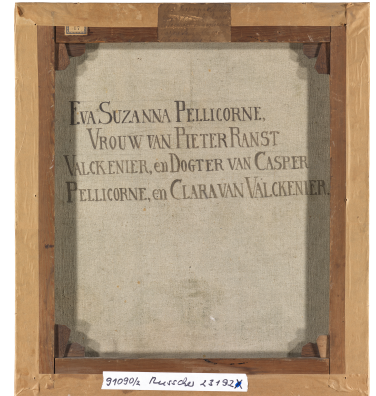 EVA SUZANNA PELLICORNE,
VROUW VAN PIETER RANST
VALCKENIER, en DOGTER VAN CASPER
PELLICORNE, en CLARA VAN VALCKENIER.
91090/2